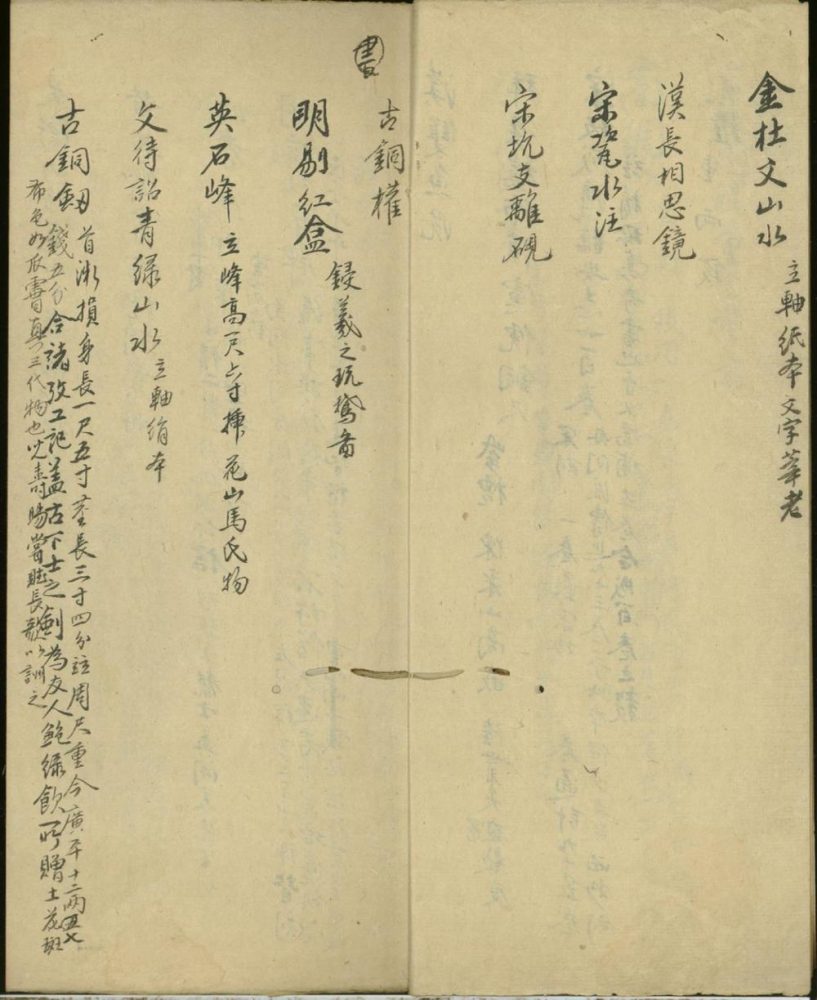 金杜文山水 立軸紙本 文字莘老
漢長相思鏡
宋瓷水注
宋坑支離硯
書
古銅權
明剔紅盒 鋟羲之玩鵞圖
英石峰 立峰高一尺六寸 花山馬氏物
文待詔青綠山水 立軸絹本
古銅劒 首漸損身長一尺五寸莖長三寸四分註周尺重今廣平十二兩
錢五分合諸攷工記蓋古下士之劍為友人鮑綠飲所贈土花斑
布色如瓜膚真三代物也 壽暘當 長歌以詶之